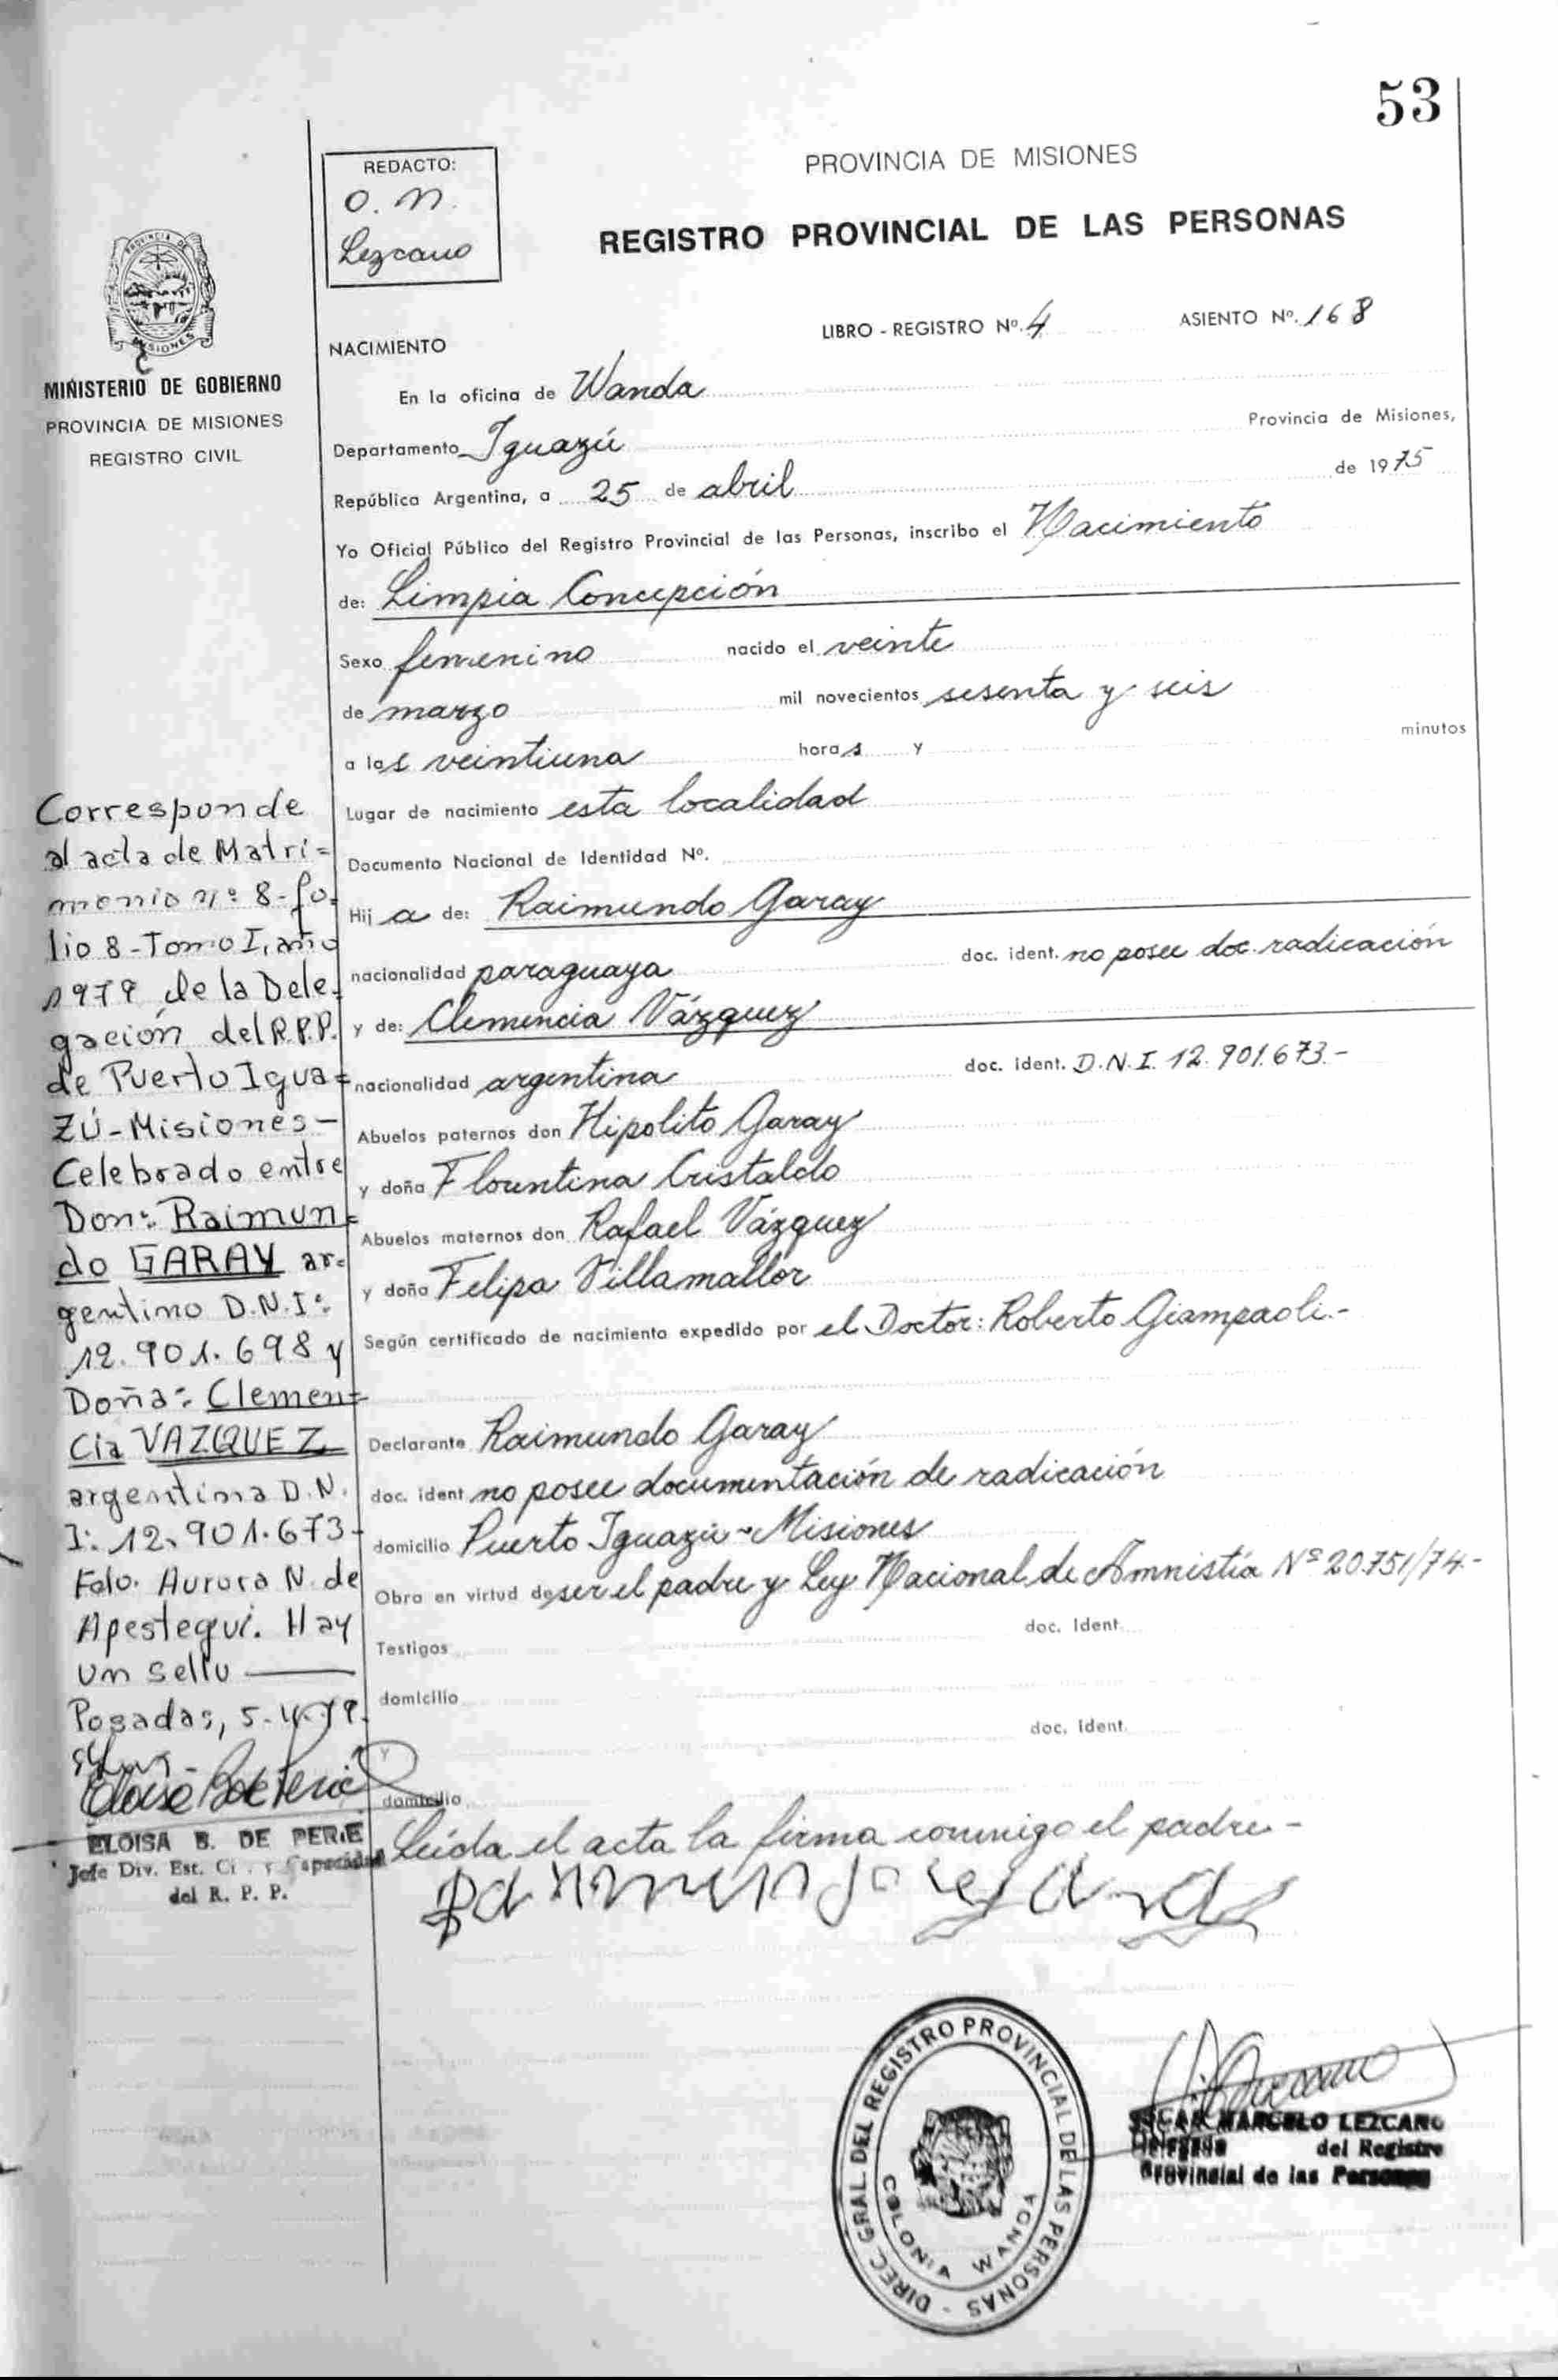 53
REDACTO:
O. M.
Lezcano
PROVINCIA DE MISIONES
REGISTRO PROVINCIAL DE LAS PERSONAS
MISIONES
MINISTERIO DE GOBIERNO
PROVINCIA DE MISIONES
REGISTRO CIVIL
LIBRO - REGISTRO Nº. 4 ASIENTO Nº. 168
NACIMIENTO
En la oficina de Wanda
Departamento Iguazú Provincia de Misiones,
República Argentina, a 25 de abril de 1975
Yo Oficial Público del Registro Provincial de las Personas, inscribo el Nacimiento
de: Limpia Concepción
Sexo femenino nacido el veinte
de marzo mil novecientos sesenta y seis
a las veintiuna horas y minutos
Lugar de nacimiento esta localidad
Documento Nacional de Identidad Nº.
Hija de: Raimundo Garay
nacionalidad paraguaya doc. ident. no posee doc. radicación
y de: Clemencia Vázquez
nacionalidad argentina doc. ident. D.N.I. 12.901.673.-
Abuelos paternos don Hipolito Garay
y doña Florentina Cristaldo
Abuelos maternos don Rafael Vázquez
y doña Felipa Villamallor
Según certificado de nacimiento expedido por el Doctor: Roberto Giampaoli.-
Declarante Raimundo Garay
doc. ident no posee documentación de radicación
domicilio Puerto Iguazú - Misiones
Obra en virtud de ser el padre y Ley Nacional de Amnistía Nº 20.751/74.-
Testigos doc. Ident.
domicilio
y doc. Ident.
domicilio
Leída el acta la firma conmigo el padre -
Corresponde
al acta de Matri=
monio nº 8 - fo=
lio 8 - Tomo I, año
1979 de la Dele=
gación del R.P.P.
de Puerto Igua=
zú - Misiones -
Celebrado entre
Don: Raimun=
do GARAY ar=
gentino D.N.I:
12.901.698 y
Doña: Clemen=
cia VAZQUEZ
argentina D.N.
I: 12.901.673-
Fdo. Aurora N. de
Apestegui. Hay
un sello
Posadas, 5-4-79.
ELOISA B. DE PERIE
Jefe Div. Est. Ci y Capacidad
del R. P. P.
DIREC. GRAL. DEL REGISTRO PROVINCIAL DE LAS PERSONAS -
COLONIA WANDA
OSCAR MARCELO LEZCANO
Delegado del Registro
Provincial de las Personas